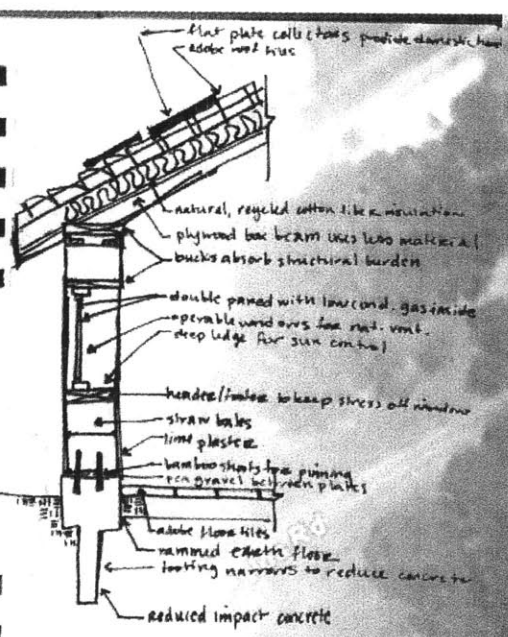 flat plate collectors provide domestic
adobe roof tiles
natural, recycled cotton fiber insulation
plywood box beam uses less material
bucks absorb structural burden
double paned with low cond. gas inside
operable windows for nat. vent.
deep ledge for sun control
header/footer to keep stress off window
straw bales
lime plaster
bamboo shoots for pinning
pea gravel between plates
adobe floor tiles
Rd
rammed earth floor
footing narrows to reduce concrete
reduced impact concrete